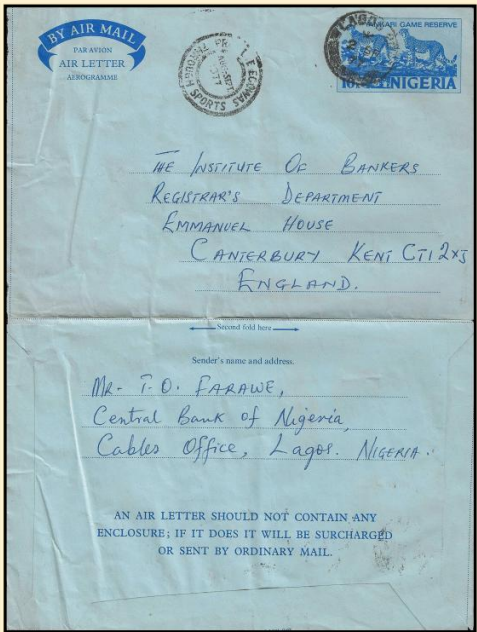 BY AIR MAIL
PAR AVION
AIR LETTER
AÉROGRAMME
LAGOS
ANKARI GAME RESERVE
NIGERIA
ECOWAS
THROUGH SPORTS
THE INSTITUTE OF BANKERS
REGISTRAR'S DEPARTMENT
EMMANUEL HOUSE
CANTERBURY KENT CT1 2XJ
ENGLAND.
Second fold here
Sender's name and address.
MR- T.O. FARAWE,
Central Bank of Nigeria,
Cables Office, Lagos. NIGERIA.
AN AIR LETTER SHOULD NOT CONTAIN ANY
ENCLOSURE; IF IT DOES IT WILL BE SURCHARGED
OR SENT BY ORDINARY MAIL.